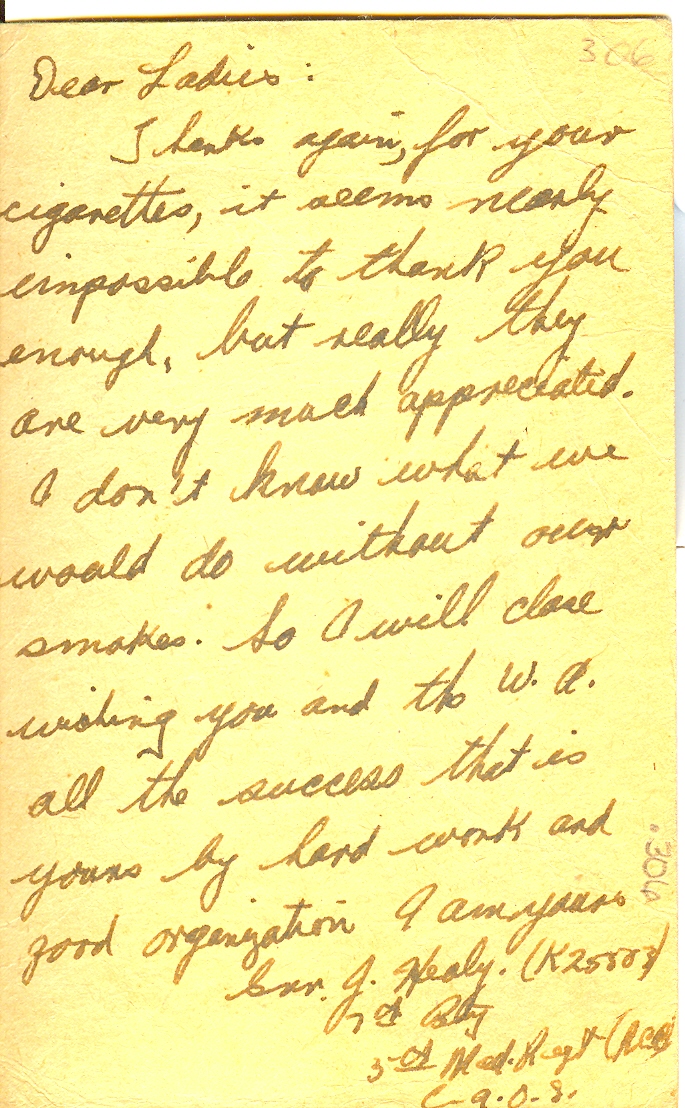 306
Dear Ladies:
Thanks again, for your
cigarettes, it seems nearly
impossible to thank you
enough, but really they
are very much appreciated.
I don't know what we
would do without our
smokes. So I will close
wishing you and the W. A.
all the success that is
yours by hard work and
good organization I am yours
Gnr. J. Healy.
7th Bty
Med. Regt
C.A.O.S.
306